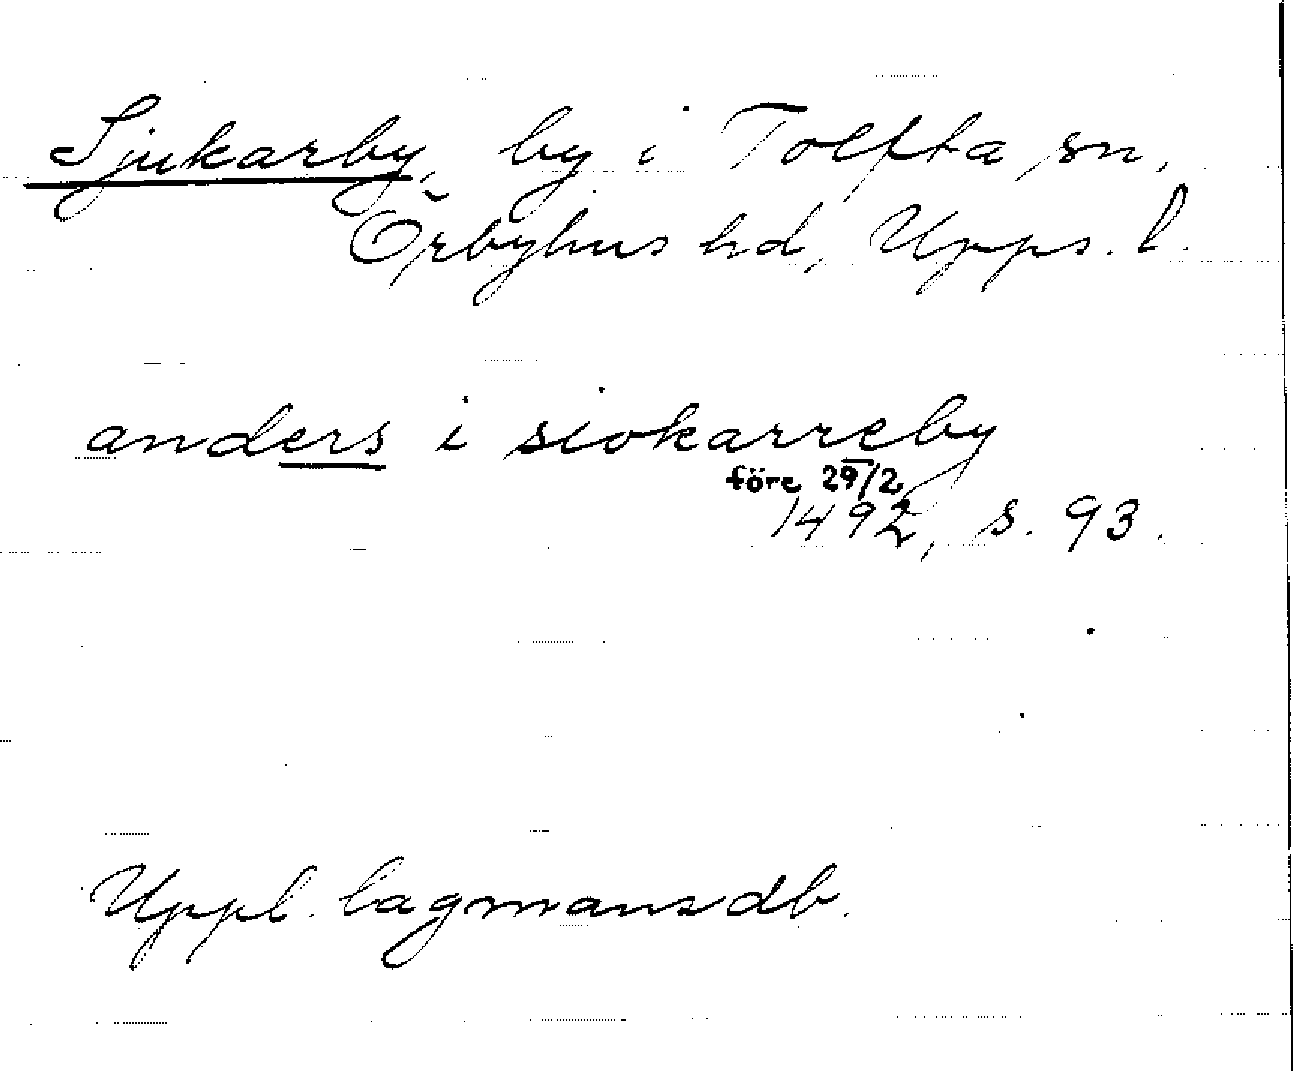 Sjukarby, by i Tolfta sn,
Örbyhus hd, Upps. l.
anders i siokarreby
före 29/2
1492, s. 93.
Uppl. lagmansdb.